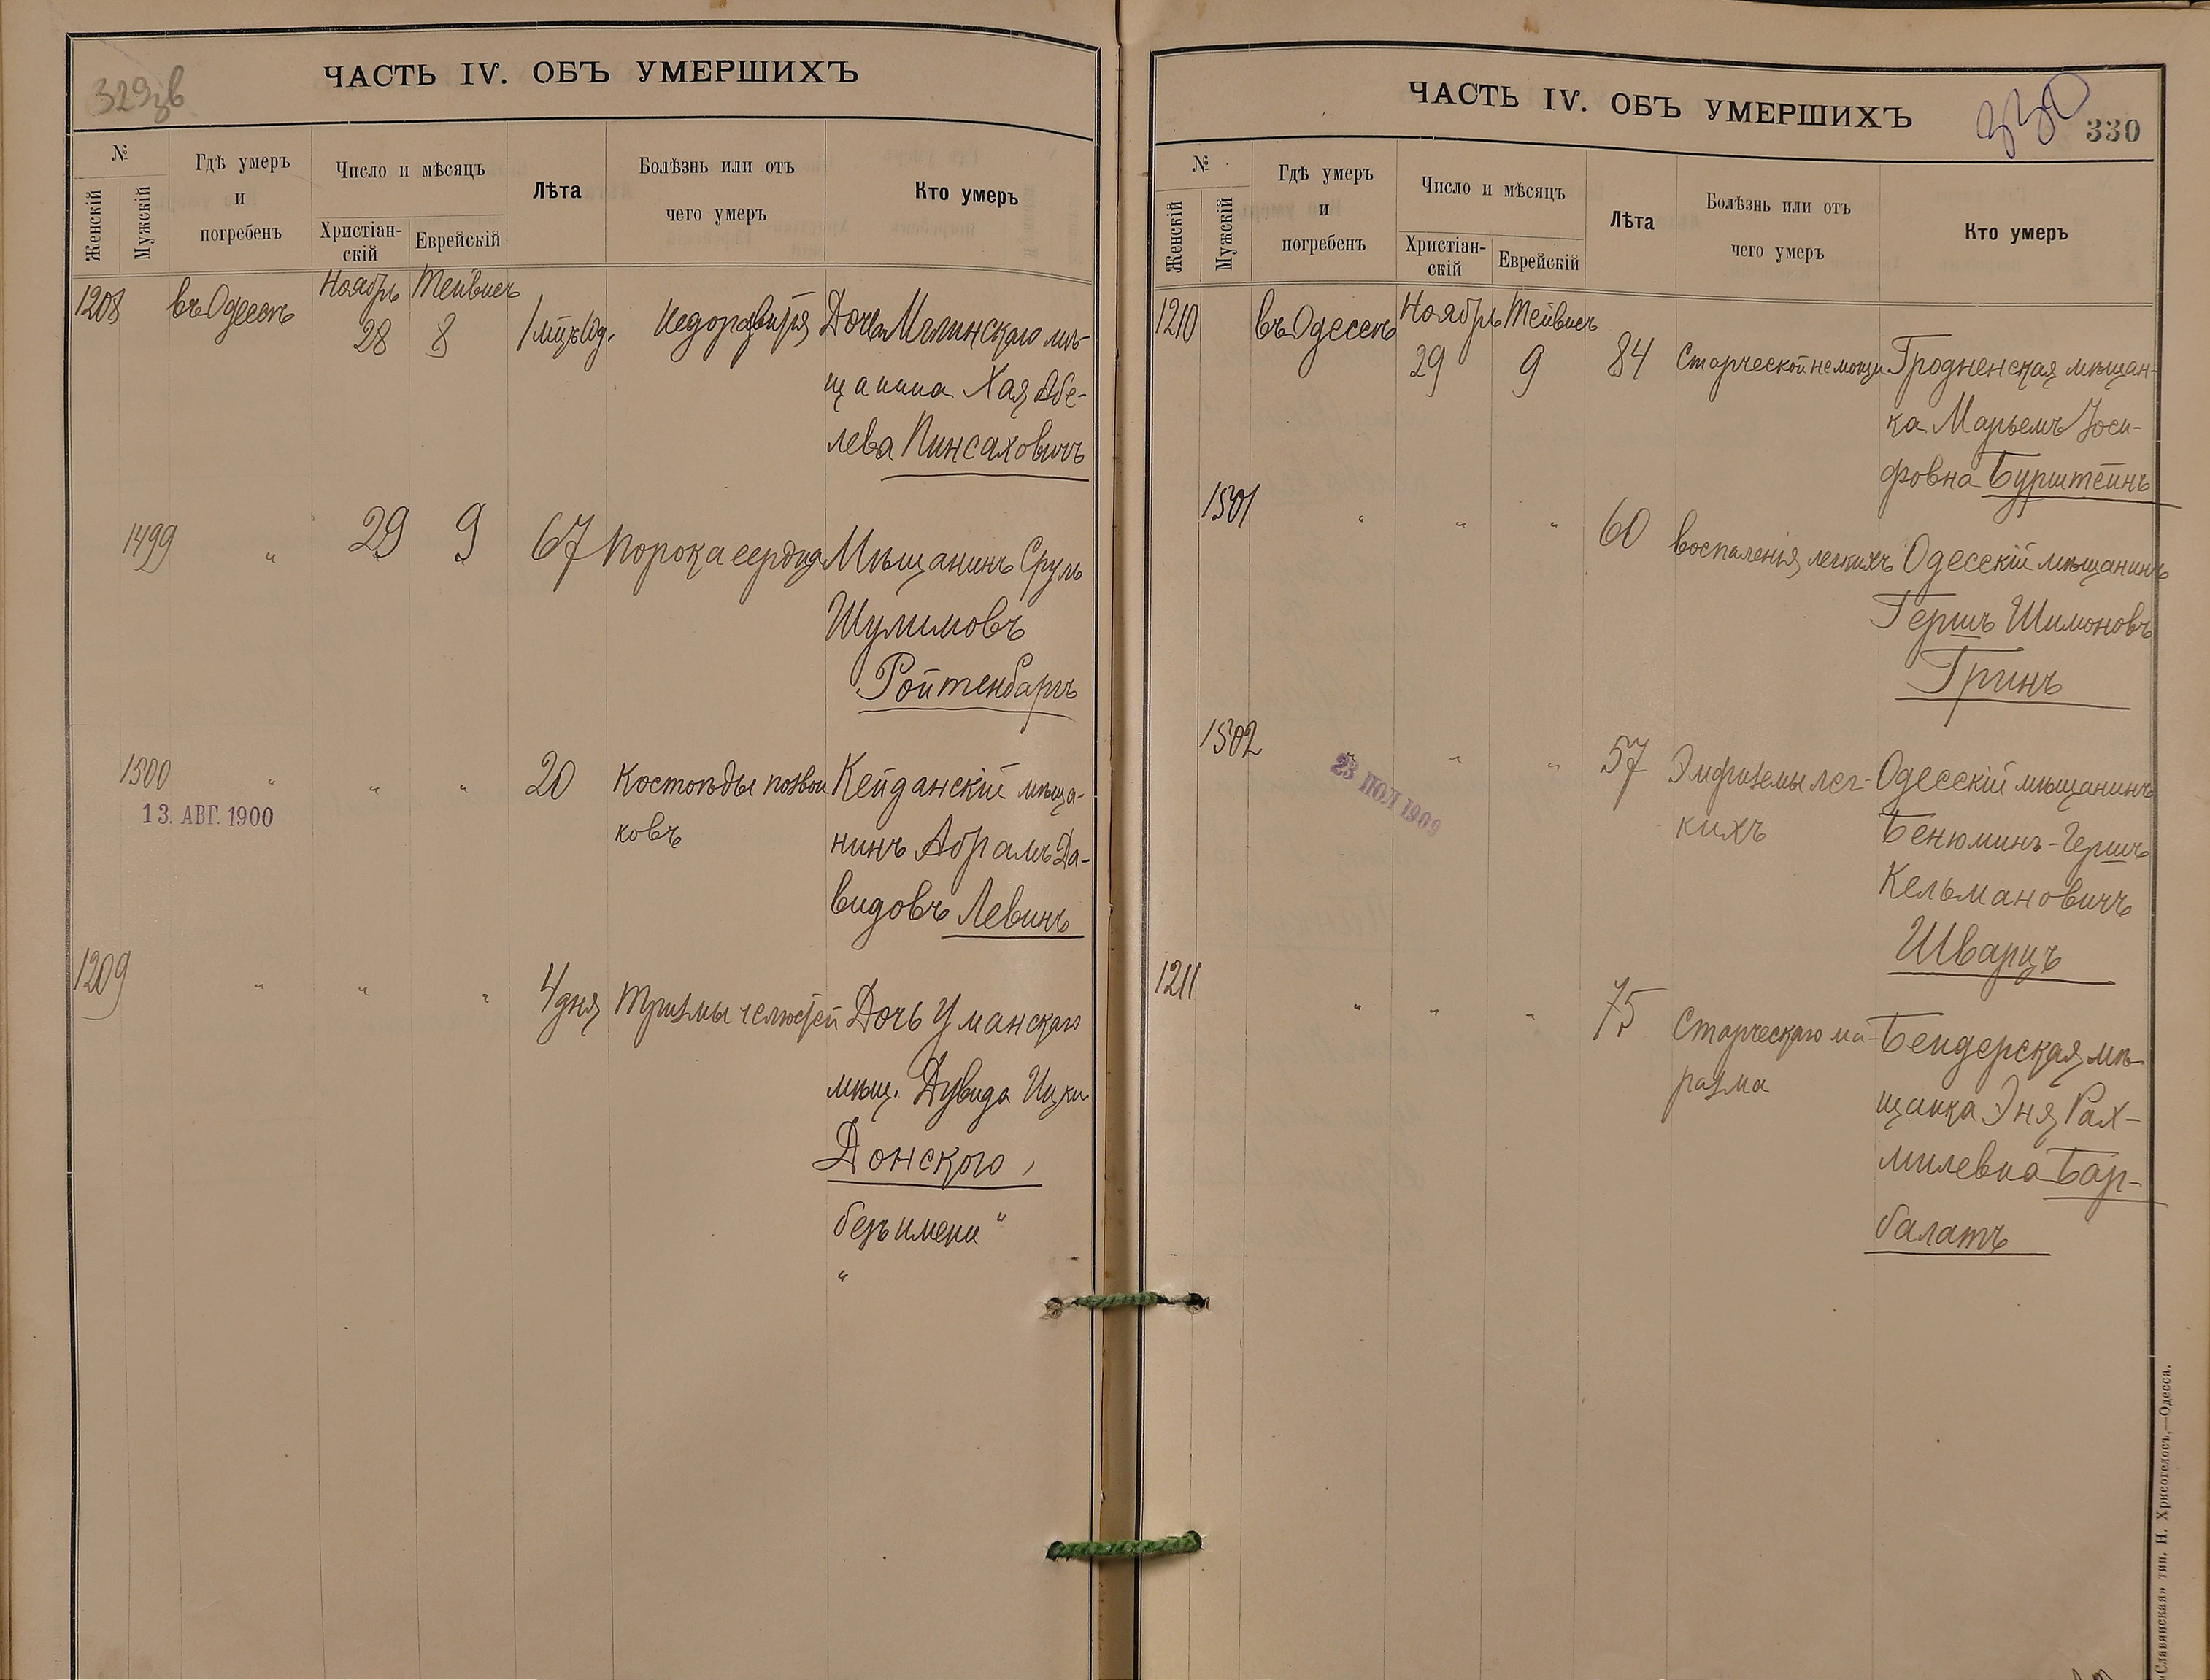 329зв
ЧАСТЬ IV. ОБЪ УМЕРШИХЪ
№
Женскій
Мужскій
Гдѣ умеръ
и
погребенъ
Число и мѣсяцъ
Христіан-
скій
Еврейскій
Лѣта
Болѣзнь или отъ
чего умеръ
Кто умеръ
1208 въ Одессѣ Ноябрь Тейвисъ
28 8 Недоразвитія Дочь Мглинскаго мѣ-
щанина Хая Абе-
лева Пинсаховичъ
1499 " 29 9 67 Порока сердца Мѣщанинъ Сруль
Шулимовъ
Ройтенбаргъ
1500 " " " 20 Костоѣды позвон Кейданскій мѣща-
ковъ нинъ Абрамъ Да-
видовъ Левинъ
13. АВГ. 1900
1209 " " " 4 дня Тризмы челюстей Дочь Уманскаго
мѣщ. Дувида Ицки
Донского,
безъ имени "
"
ЧАСТЬ IV. ОБЪ УМЕРШИХЪ
330
330
№
Женскій
Мужскій
Гдѣ умеръ
и
погребенъ
Число и мѣсяцъ
Христіан-
скій
Еврейскій
Лѣта
Болѣзнь или отъ
чего умеръ
Кто умеръ
1210 въ Одессѣ Ноябрь Тейвисъ
29 9 84 Старческой немощи Гродненская мѣщан-
ка Марьемъ Іоси-
фовна Бурштейнъ
1501 " " " 60 воспаленія легкихъ Одесскій мѣщанинъ
Гершъ Шимоновъ
Гринъ
1502 " " 57 Эмфиземы лег- Одесскій мѣщанинъ
кихъ Бенюминъ-Гершъ
Кельмановичъ
Шварцъ
1909
1211 " " " 75 Старческаго ма- Бендерская мѣ-
разма щанка Эня Рах-
милевна Бар-
балатъ
«Славянская» тип. Н. Хрисогелосъ,—Одесса.